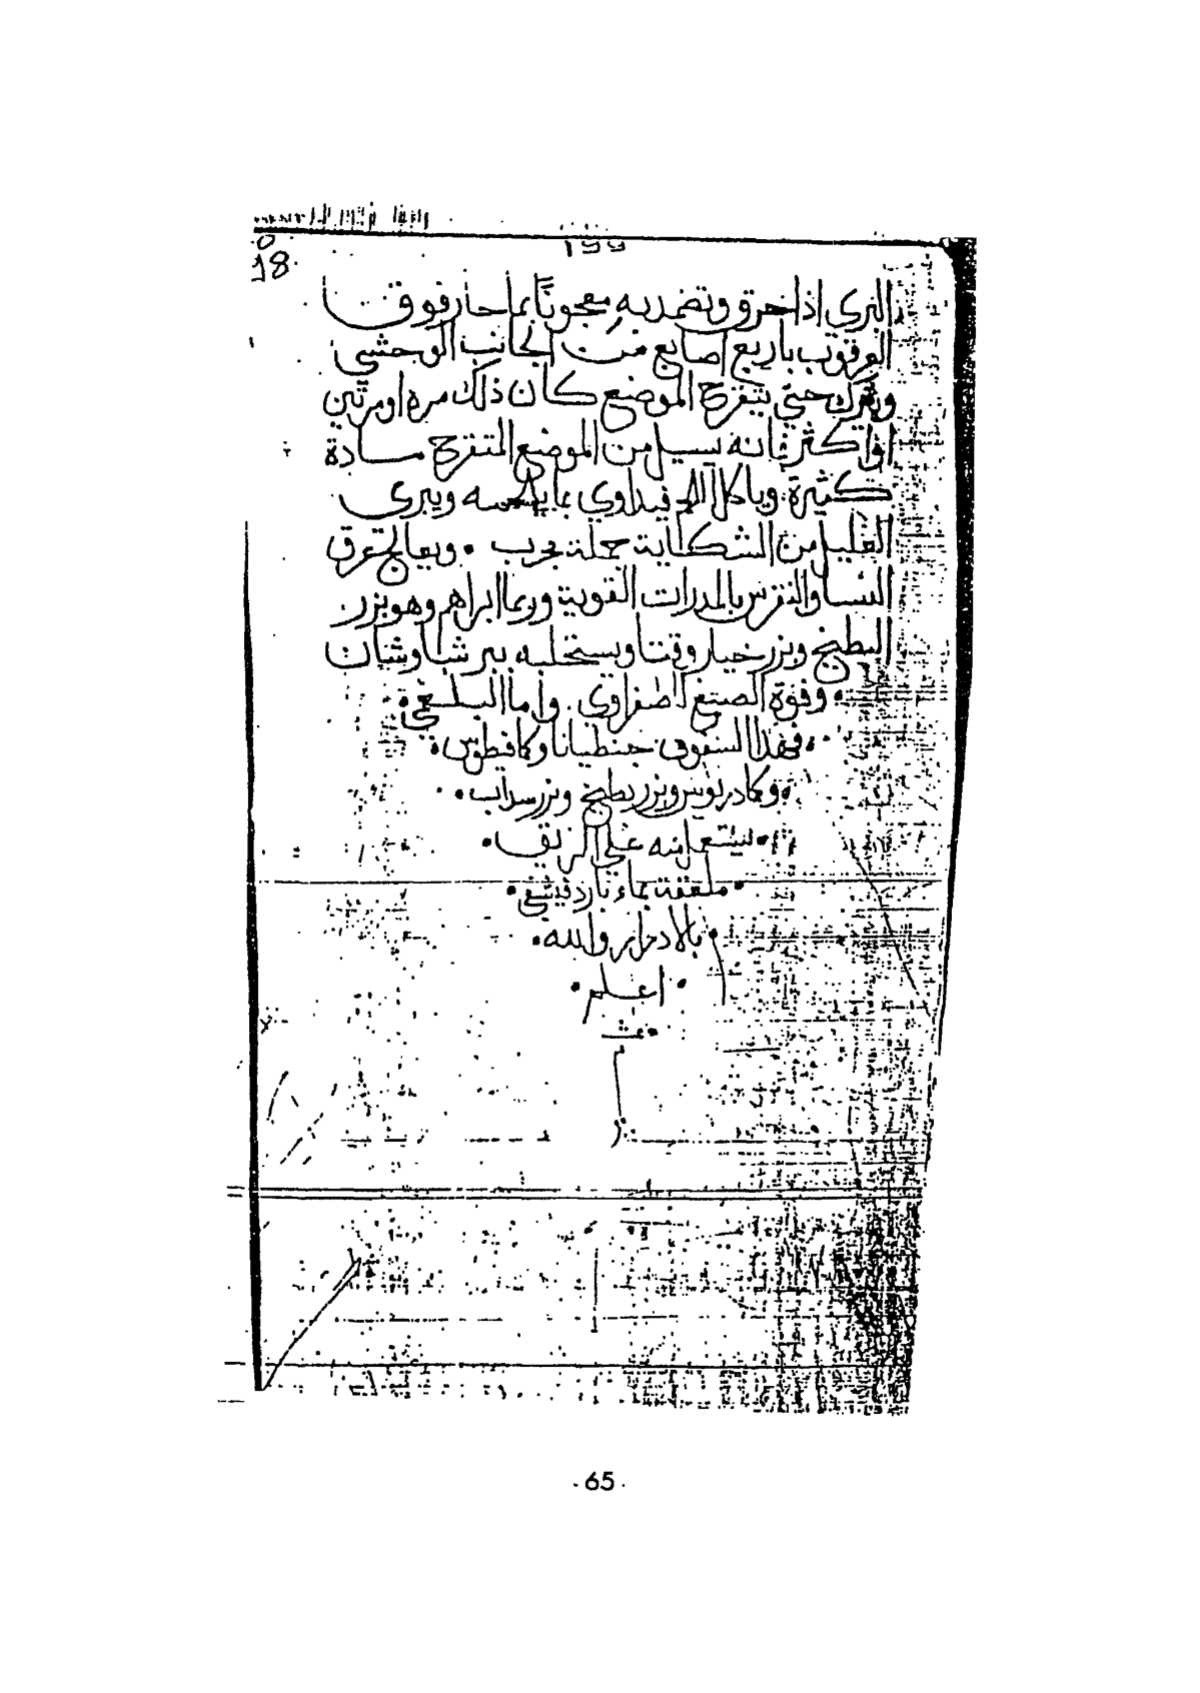 199
18
البري اذا حرق وتضمد به معجونًا بما حار فوق
العرقوب باربع اصابع من الجانب الوحشي
ويترك حتي يتقرح الموضع كان ذلك مره او مرتين
او اكثر فانه يسيل من الموضع المتقرح مادة
كثيرة وياكل فيداوي بما ويبري
العليل من الشكاية جملة مجرب . ويعالج عرق
النسا والنقرس بالمدرات القوية وربما ابراهم وهو بزر
البطيخ وبزر خيار وقثا ويستحلبه ببرشياوشان
وفوة الصبغ لصفراوي . واما البلغمي
فهذا السفوف جنطيانا وكمافيطوس
وكمادريوس وبزر بطيخ وبزر سداب
يستعمل منه علي الريق
ملعقة بماء بارد فيشفي
بالادرار والله
اعلم
- 65 -